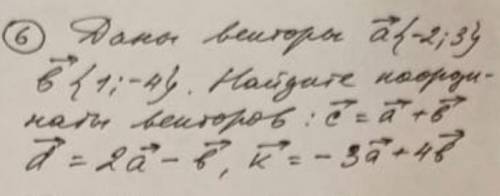 ⑥ Даны векторы a⃗{-2;3}
b⃗{1;-4}. Найдите коорди-
наты векторов: c⃗ = a⃗ + b⃗
d⃗ = 2a⃗ - b⃗, k⃗ = -3a⃗ + 4b⃗